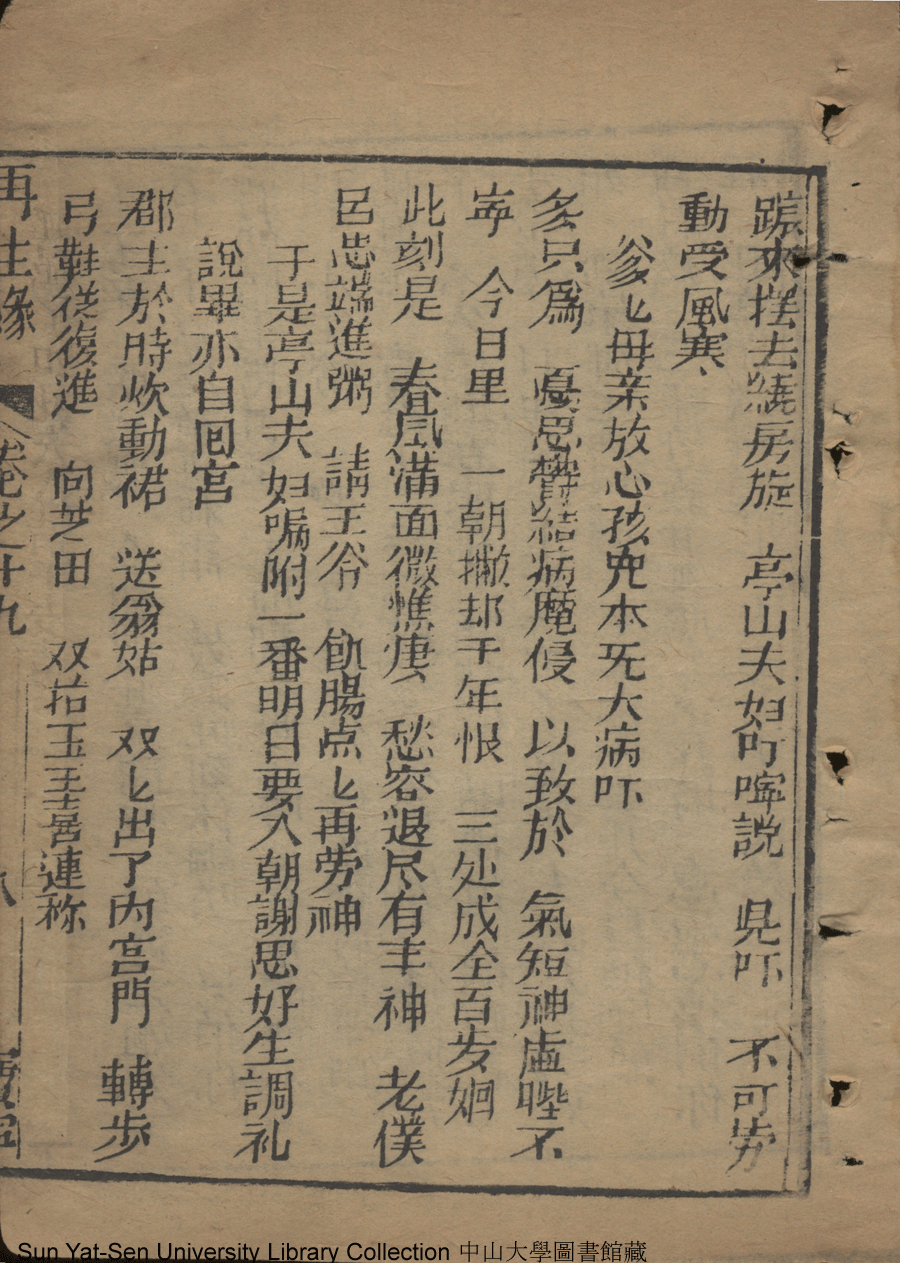 踱來摆去繞房旋　亭山夫妇叮嚀說　児吓　不可劳
動受風寒、
爹匕母亲放心孩児本旡大病吓
多只為　憂思欝結病魔侵　以致於　氣短神虛睡不
寕　今日里　一朝撇却千年恨　三处成全百岁姻
此刻是　春風滿面微憔悴　愁容退尽有丰神　老僕
呂忠端進粥　請王爷　飢腸点匕再劳神
于是亭山夫妇嘱附一番明日要入朝謝恩好生調礼
說畢亦自囘宮
郡主於時欵動裙　送翁姑　双匕出了内宮門　轉步
弓鞋從復進　向芝田　双抬玉手喜連称
再生緣　卷之十九　八
Sun Yat-Sen University Library Collection 中山大學圖書館藏